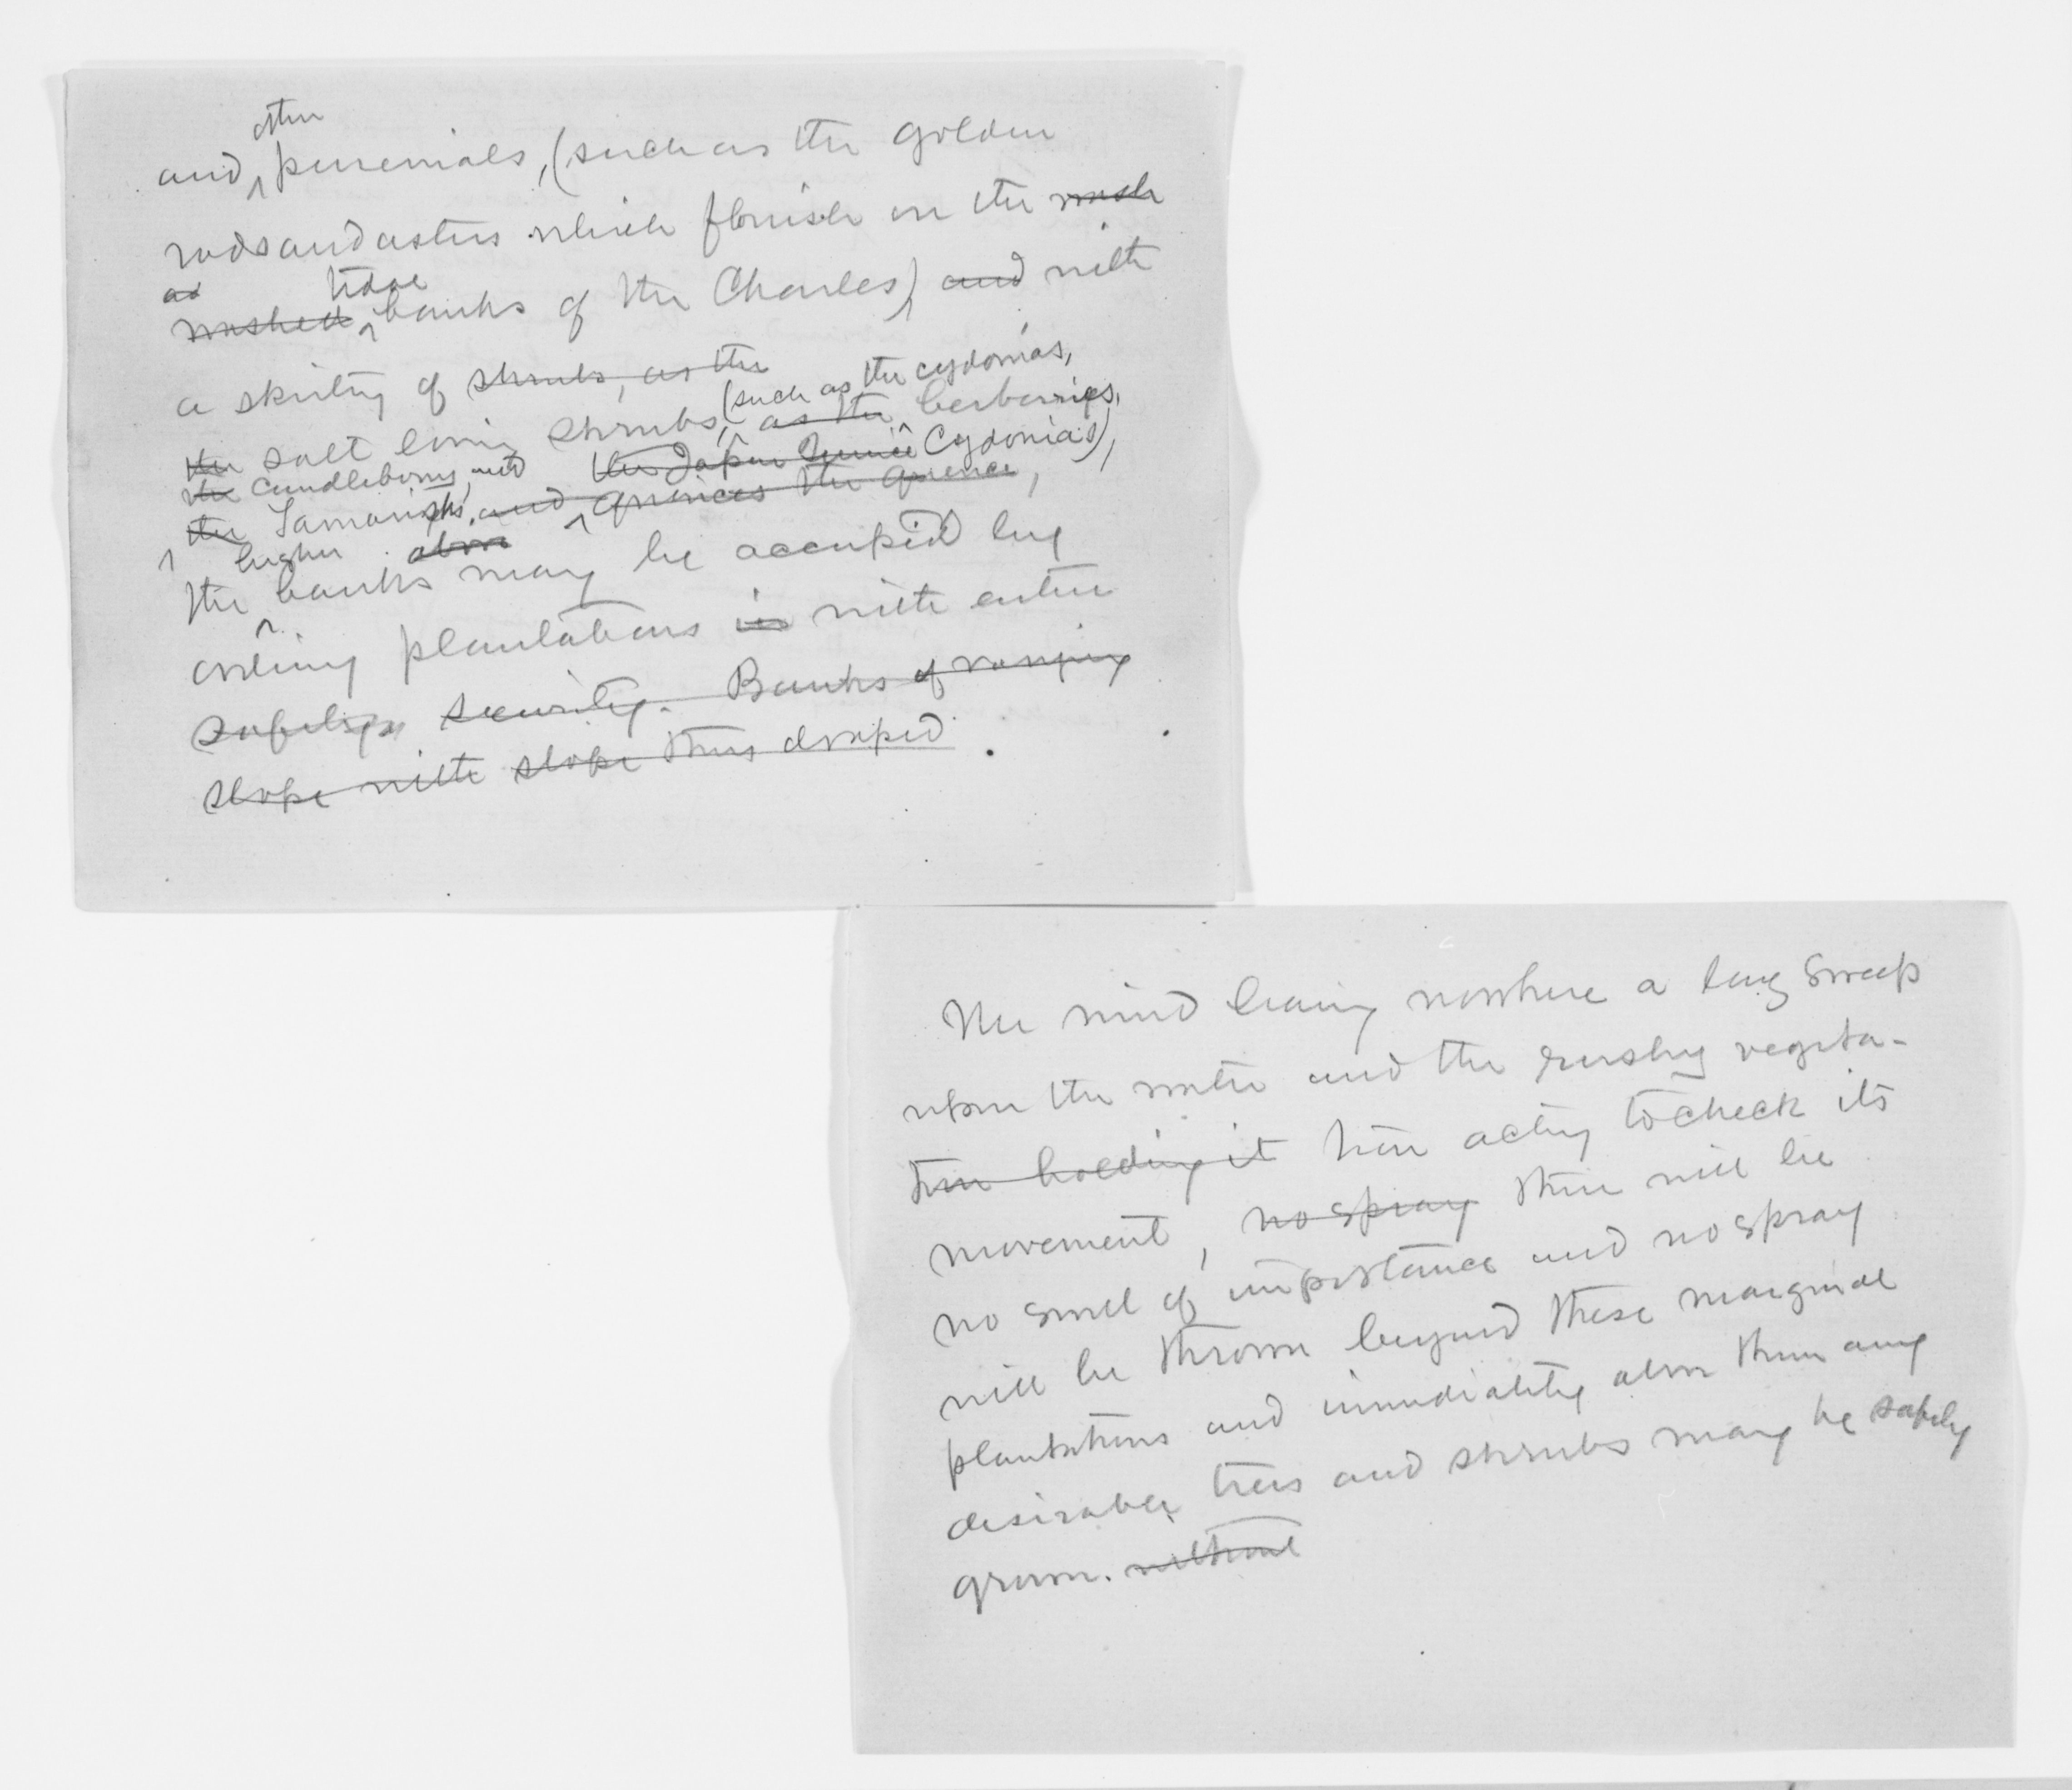 other
and perennials, (such as the golden
rods and asters which flourish on the wash
as tidal
washed banks of the Charles) and with
a skirting of shrubs, as the
(such as the cydonias,
the salt loving shrubs, as the berberries,
the candleberry and the Japan Quince Cydonias),
the Tamarisks, and quinces the quince,
higher above
the banks may be occupied by
ordinary plantations in with entire
safety security. Banks of varying
slope with slope thus draped
The wind having nowhere a long sweep
upon the water and the rushy vegeta-
tion holding it tion acting to check its
movement, no spray there will be
no swell of importance and no spray
will be thrown beyond these marginal
plantations and immediately above them any
desirable trees and shrubs may be safely
grown. without